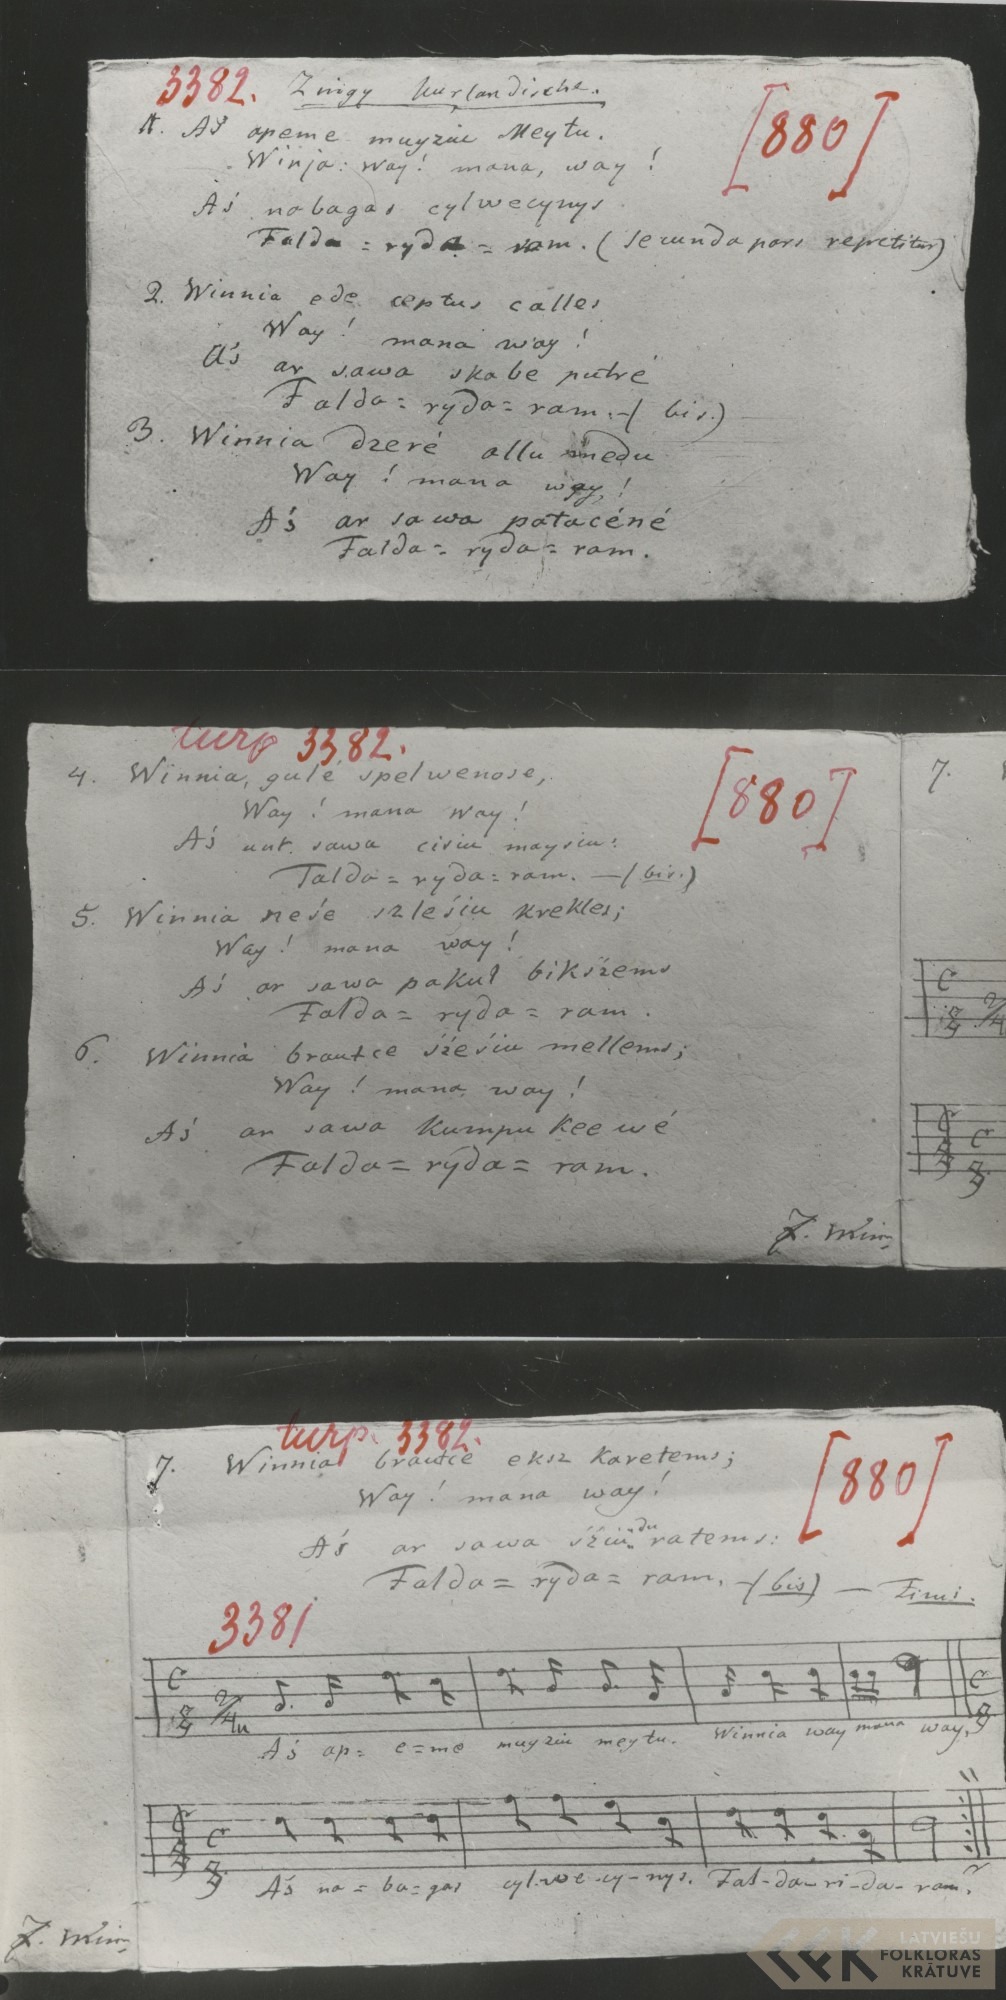 3382. Zingy kurlandische.
[880]
1. Aś apeme muyziu Meytu.
Winja: Way! mana, way!
Aś nabagas cylwecynys
Falda = ryda = ram. (secunda pars repetitur)
2. Winnia ede ceptus calles
Way! mana way!
Aś ar sawa skabe putré
Falda = ryda = ram. -(bis.)
3. Winnia dzeré allu medu
Way! mana way!
Aś ar sawa patacéné
Falda = ryda = ram.
turp 3382.
[880]
4. Winnia, gulé spelwenose,
Way! mana way!
Aś unt. sawa cisiu maysiu:
Falda = ryda = ram. —(bis.)
5. Winnia neśe szleśiu krekles;
Way! mana way!
Aś ar sawa pakuł bikśzems
Falda = ryda = ram.
6. Winnia brautce śześiu mellems;
Way! mana way!
Aś ar sawa kumpu keewé
Falda = ryda = ram.
7. Win
7.
turp. 3382.
[880]
7. Winnia brautce eksz karetems;
Way! mana way!
Aś ar sawa du ratems:
Falda = ryda = ram. -(bis) —
3381
C 2/4
Aś ap = e = me muyziu meytu. Winnia way mana way,
C
Aś na = ba = gas cyl-we-cy-nys. Fal-da-ri-da-ram.
7. Win
LATVIEŠU
FOLKLORAS
KRĀTUVE